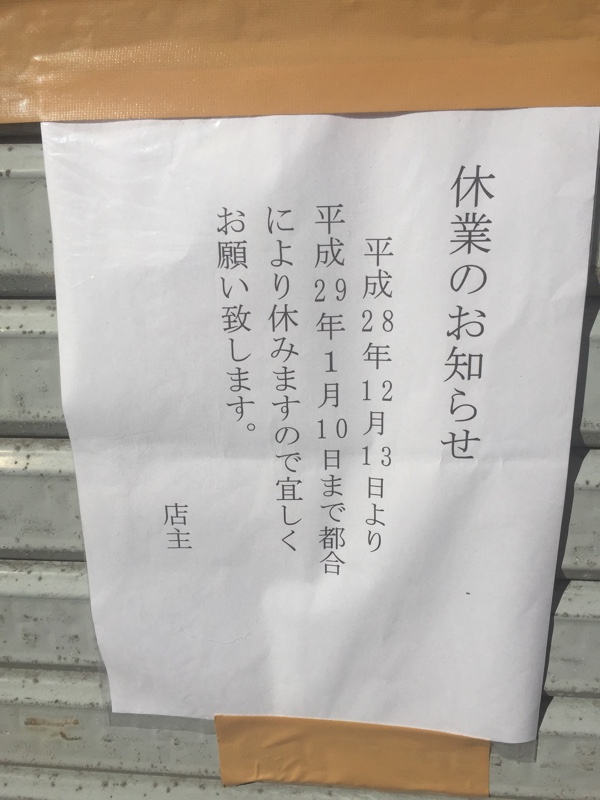 休業のお知らせ
平成28年12月13日より
平成29年1月10日まで都合
により休みますので宜しく
お願い致します。
店主